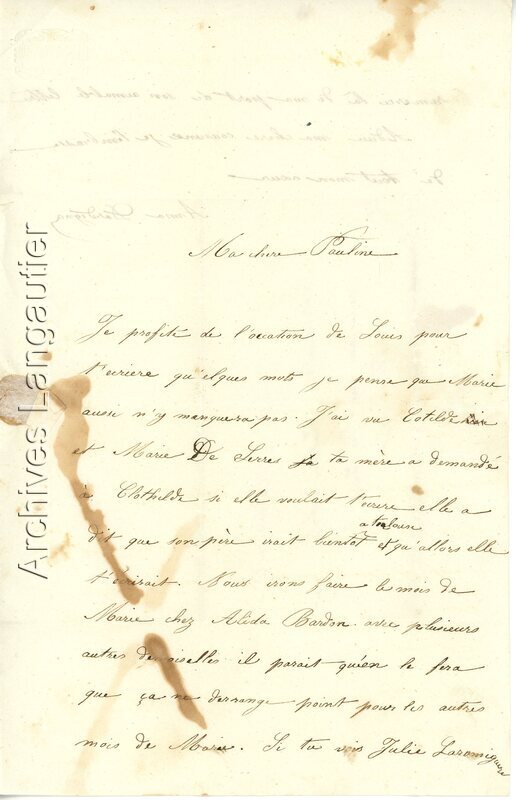 Ma chere Pauline
Je profite de l'ocation de Louis pour
t'ecriere qu'elques mots je pense que Marie
aussi n'y manquera pas. J'ai vu Cotilde
et Marie De Serres ta mère a demandé
à Clothilde si elle voulait t'ecrere elle a
dit que son père irait bientot a toulouse et qu'allors elle
t'écrirait. Nous irons faire le mois de
Marie chez Alida Bardon avec plusieurs
autres demoiselles il parait qu'en le fera
que ça ne derrange point pour les autres
mois de Marie. Si tu vois Julie Laromiguiere
Archives Langautier